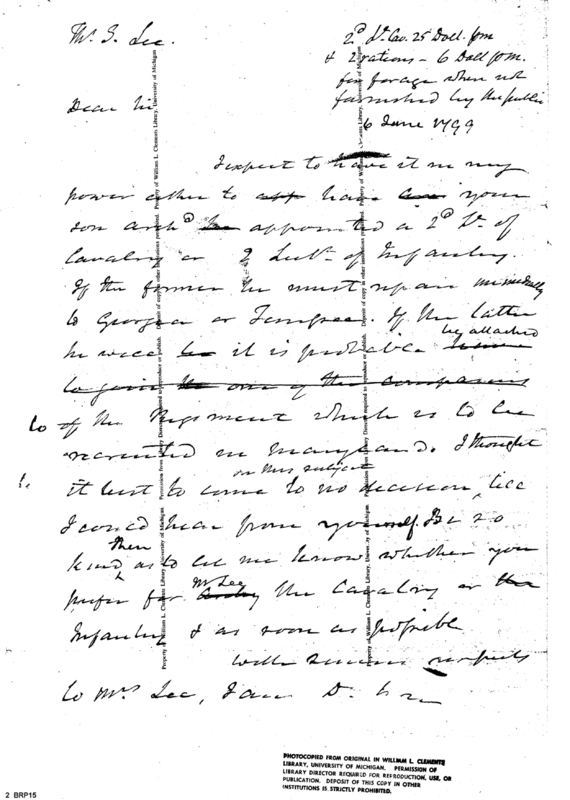 Mr. S. Lee.
2d Lt. Cav. 25 Doll. pm
& 2 rations - 6 Doll pm.
for forage when not
furnished by the public
6 June 1799
Dear Sir
I expect to have it in my
power either to app have your
son appointed a 2d Lt. of
Cavalry or 2 Lieut. of Infantry.
If the former he must repair immediately
to Georgia or Tennessee. If the latter
he will be it is probable be attached
to join the one of the companies
to of the Regiment which is to be
recruited in Maryland. I thought
on this subject
it best to come to no decision, till
I could hear from yourself. Be so
kind then as to let me know whether you
prefer for Mr Lee the Cavalry or the
Infantry & as soon as possible
with sincere respects
to Mrs Lee, I am D. Sir
Property of William L. Clements Library, University of Michigan
PHOTOCOPIED FROM ORIGINAL IN WILLIAM L. CLEMENTS
LIBRARY, UNIVERSITY OF MICHIGAN. PERMISSION OF
LIBRARY DIRECTOR REQUIRED FOR REPRODUCTION, USE, OR
PUBLICATION. DEPOSIT OF THIS COPY IN OTHER
INSTITUTIONS IS STRICTLY PROHIBITED.
2 BRP15